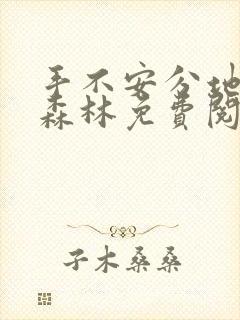 手不安分地
森林免费阅
子木桑桑